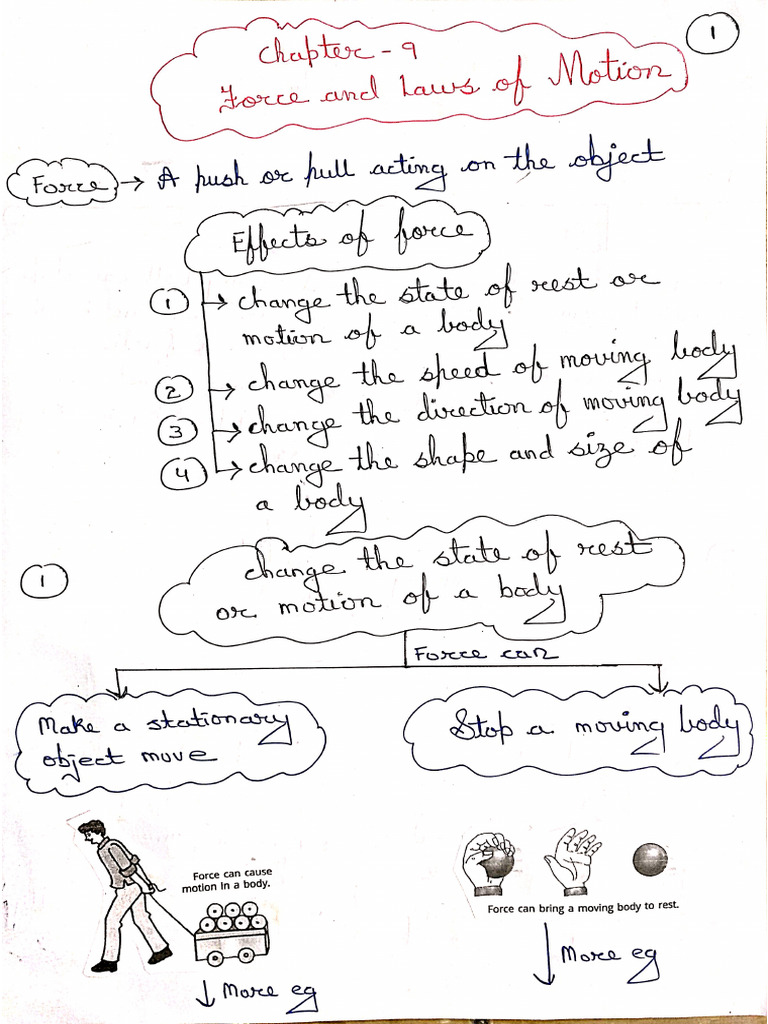 1
Chapter - 9
Force and Laws of Motion
Force → A push or pull acting on the object
Effects of force
1 → change the state of rest or
motion of a body
2 → change the speed of moving body
3 → change the direction of moving body
4 → change the shape and size of
a body
1
change the state of rest
or motion of a body
Force can
Make a stationary
object move
Stop a moving body
Force can cause
motion in a body.
Force can bring a moving body to rest.
↓ More eg
↓ More eg